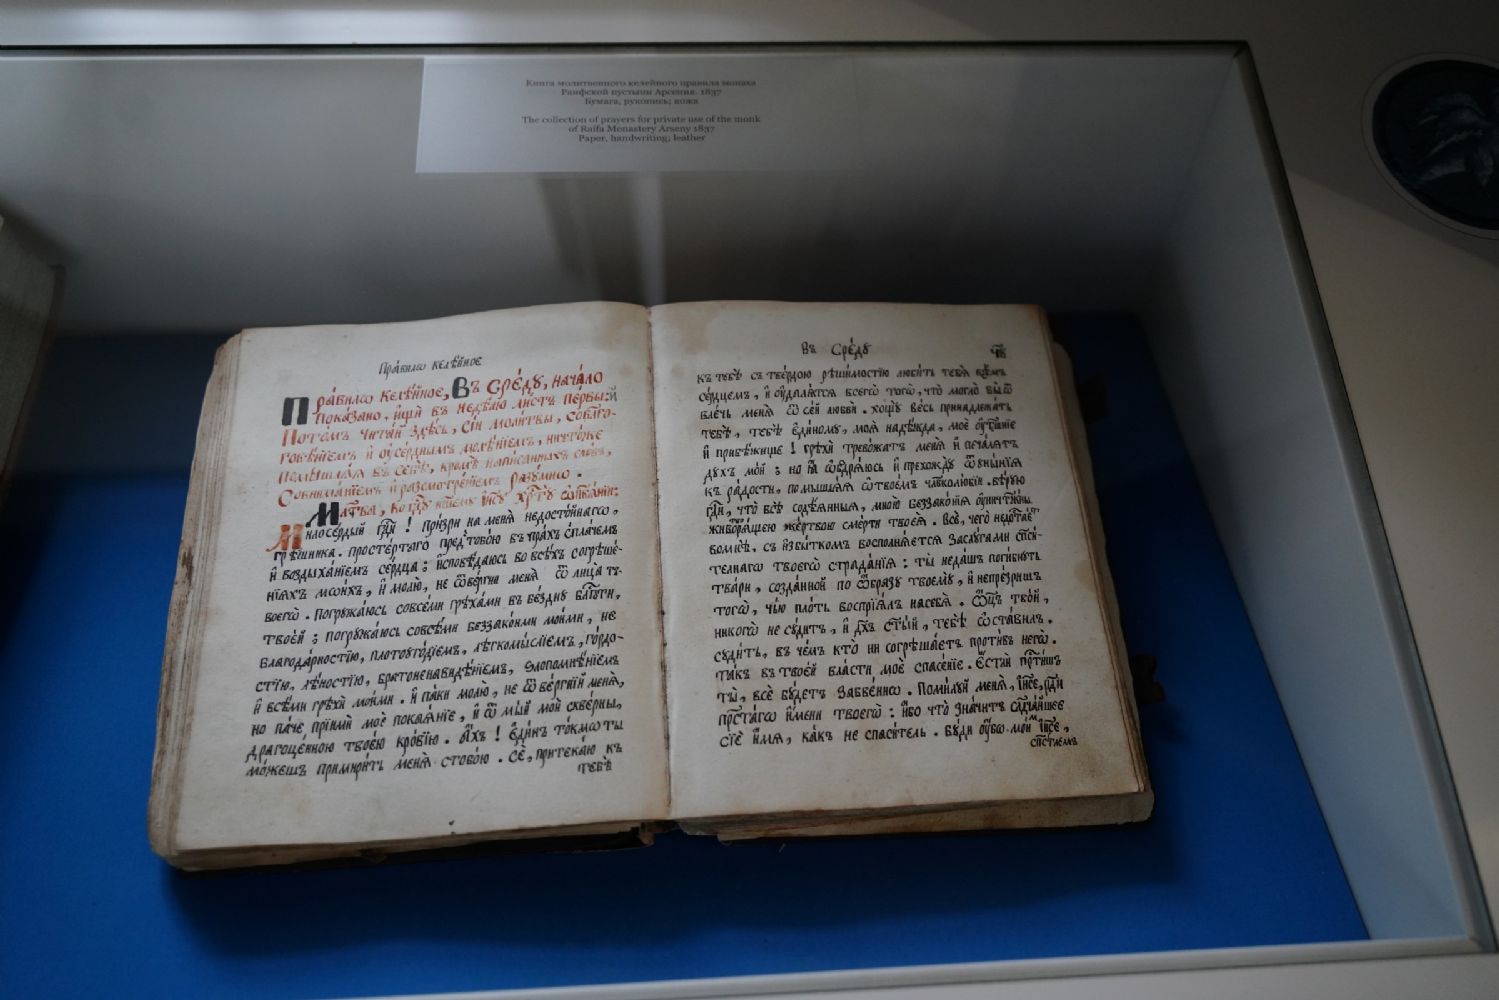 Книга молитвенного келейного правила монаха
Раифской пустыни Арсения. 1837
Бумага, рукопись; кожа
The collection of prayers for private use of the monk
of Raifa Monastery Arseny 1837
Paper, handwriting; leather
Пра́вилѡ келе́йное
Пра́вилѡ келе́йное, Въ Сре́ду, нача́ло
пока́зано, и҆щѝ въ недѣ́лю ли́стъ пе́рвый
Пото́мъ чита́й здѣ́сь, сїѝ моли́твы, собл҃го-
говѣ́нїемъ и҆ оу҆се́рднымъ моле́нїемъ, ничто́же
помышлѧ́ѧ въ себѣ̀, кромѣ̀ напи́санныхъ сло́въ,
Совнима́нїемъ и҆ разсмотре́нїемъ ра́зумнѡ.
Мл҃тва, ко гд҇ꙋ на́шемꙋ і҆и҃сꙋ хр҇тꙋ̀
Милосе́рдый гд҇и! при́зри на менѧ̀ недосто́йнагѡ,
грѣ́шника. просте́ртаго пред̾ тобо́ю въ пра́хъ спла́чемъ
и҆ воздыха́нїемъ се́рдца; и҆сповѣ́даюсь во всѣ́хъ согрѣше́-
нїѧхъ мои́хъ, и҆ молю̀, не ѿве́ргни менѧ̀ ѿ лица̀ тв-
воегѡ̀. Погружа́юсь совсѣ́ми грѣха́ми въ бе́здну бл҃гости,
твое́й; погружа́юсь совсѣ́ми беззако́нми мои́ми, не
благода́рностїю, плотоуго́дїемъ, легкомы́слїемъ, го́рдо-
стїю, лѣ́ностїю, братоненави́дѣнїемъ, злопомнѣ́нїемъ
и҆ всѣ́ми грѣхѝ мои́ми. и҆ па́ки молю̀, не ѿве́ргни менѧ̀,
но па́че прїимѝ моѐ покаѧ́нїе, и҆ ѡ҆мы́й моѝ скве́рны,
драгоцѣ́нною твое́ю кро́вїю. а҆́хъ! є҆ди́нъ то́кмѡ ты̀
мо́жешъ примири́ть менѧ̀ стобо́ю. сѐ, притека́ю къ
тебѣ̀
Въ Сре́ду
къ тебѣ̀ съ тве́рдою рѣши́мостїю люби́ть тебѧ̀ всѣ́мъ
се́рдцемъ, и҆ оу҆далѧ́тсѧ всегѡ̀ тогѡ̀, что̀ могло̀ бы ѿ
вле́чь менѧ̀ ѿ сей любвѝ. хощу̀ ве́сь принадлежа́ть
тебѣ̀, тебѣ̀ є҆ди́ному, моѧ̀ наде́жда, моѐ оу҆тѣше́нїе
и҆ прибѣ́жище! грѣхѝ трево́жатъ менѧ̀ и҆ печа́лѧтъ
ду́хъ мо́й; но ѧ҆̀ ѡ҆бодрѧ́юсь и҆ прехожду̀ ѿ оу҆ны́нїѧ
къ ра́дости, помышлѧ́ѧ ѡ҆ твое́мъ человѣколю́бїи. вѣ́рую
гд҇и, что̀ всѣ̀ содѣ́ѧнныѧ, мно́ю беззако́нїѧ
животворѧ́щею же́ртвою сме́рти твоеѧ̀. Всѐ, чегѡ̀ недостае́тъ
во мнѣ̀, съ и҆збы́ткомъ восполнѧ́етсѧ заслу́гами спаси́-
тельнагѡ твоегѡ̀ страда́нїѧ: ты̀ неда́шъ поги́бнуть
тва́ри, созда́нной по ѡ҆́бразу твоему̀, и҆ непре́зришъ
тогѡ̀, чїю̀ пло́ть воспрїѧ́лъ насебѧ̀. ѻ҆ц҃ъ тво́й,
никого̀ не су́дитъ, и҆ дх҃ъ ст҃ы́й, тебѣ̀ ѡ҆ста́вилъ.
суди́ть, въ че́мъ кто̀ ни согрѣша́етъ проти́въ негѡ̀.
та́къ въ твое́й вла́сти моѐ спасе́нїе.
ты̀, всѐ бу́детъ забве́нно. Поми́луй менѧ̀, і҆и҃се, ра́ди
прест҃а́гѡ и҆́мени твоегѡ̀: и҆́бо что̀ зна́читъ сладча́йшее
сїѐ и҆́мѧ, ка́къ не спаси́тель. бу́ди оу҆́бѡ мо́й і҆и҃се,
спаси́телемъ